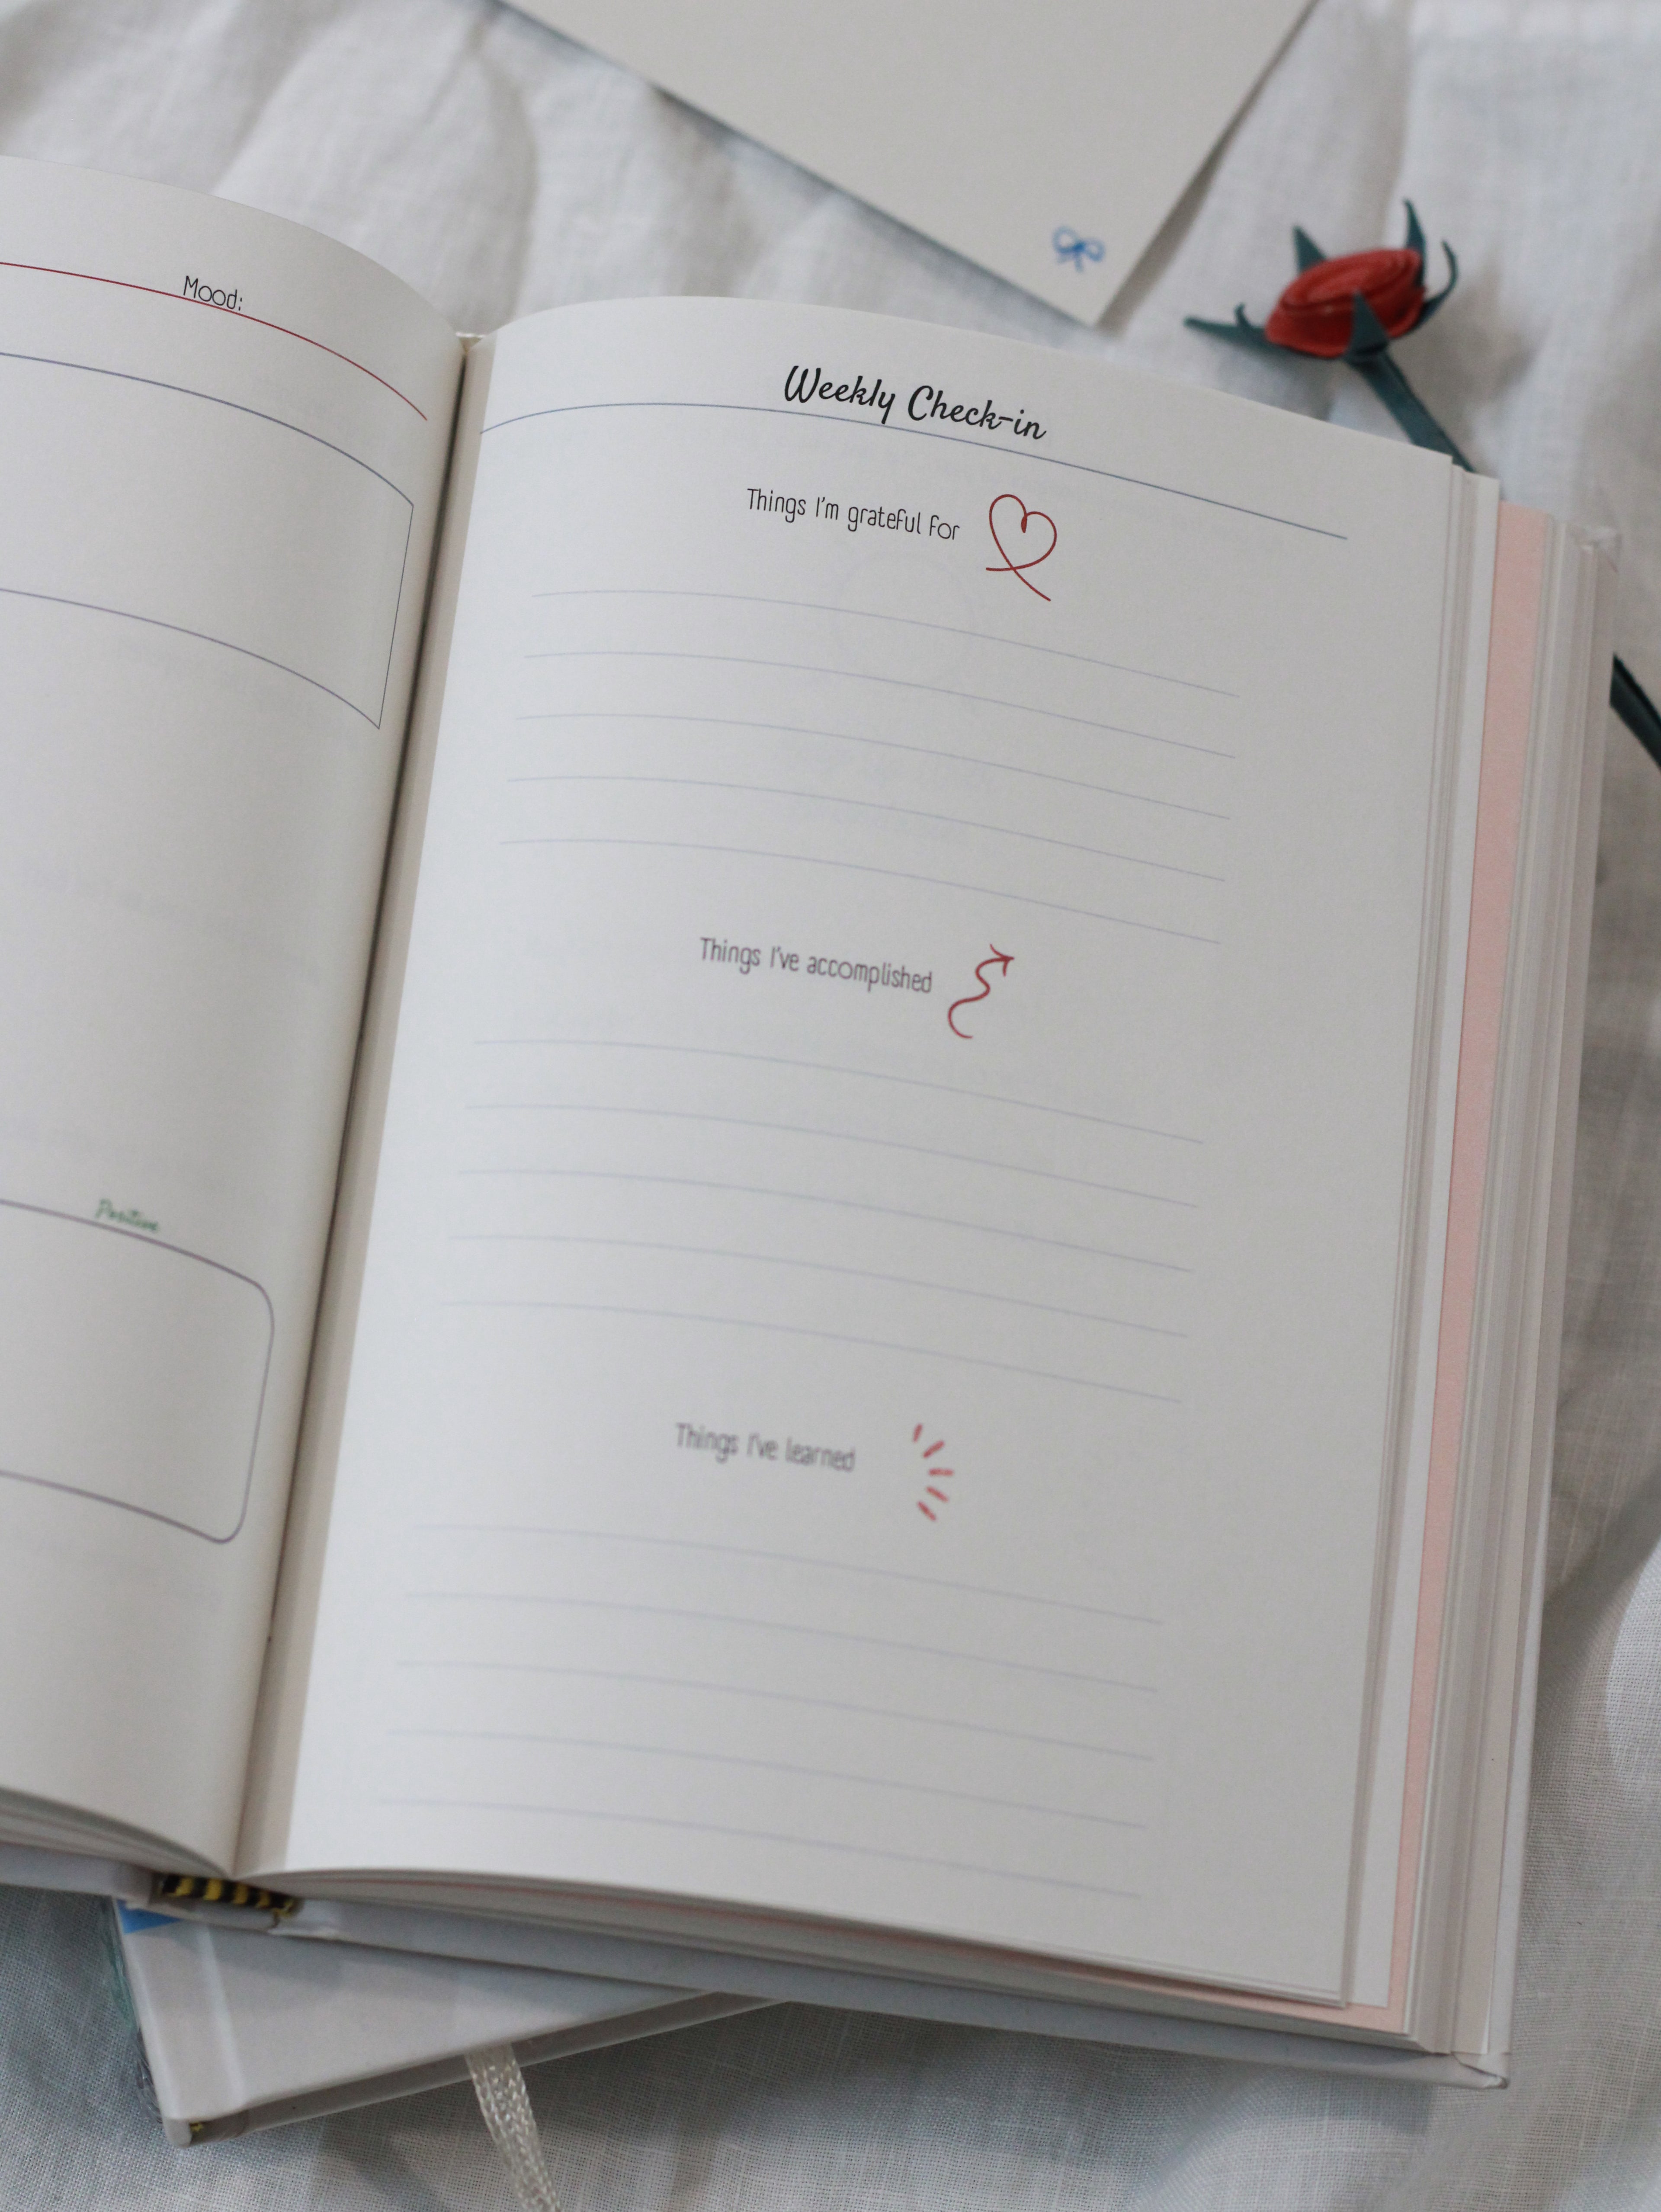 Mood:
Positive
Weekly Check-in
Things I'm grateful for
Things I've accomplished
Things I've learned